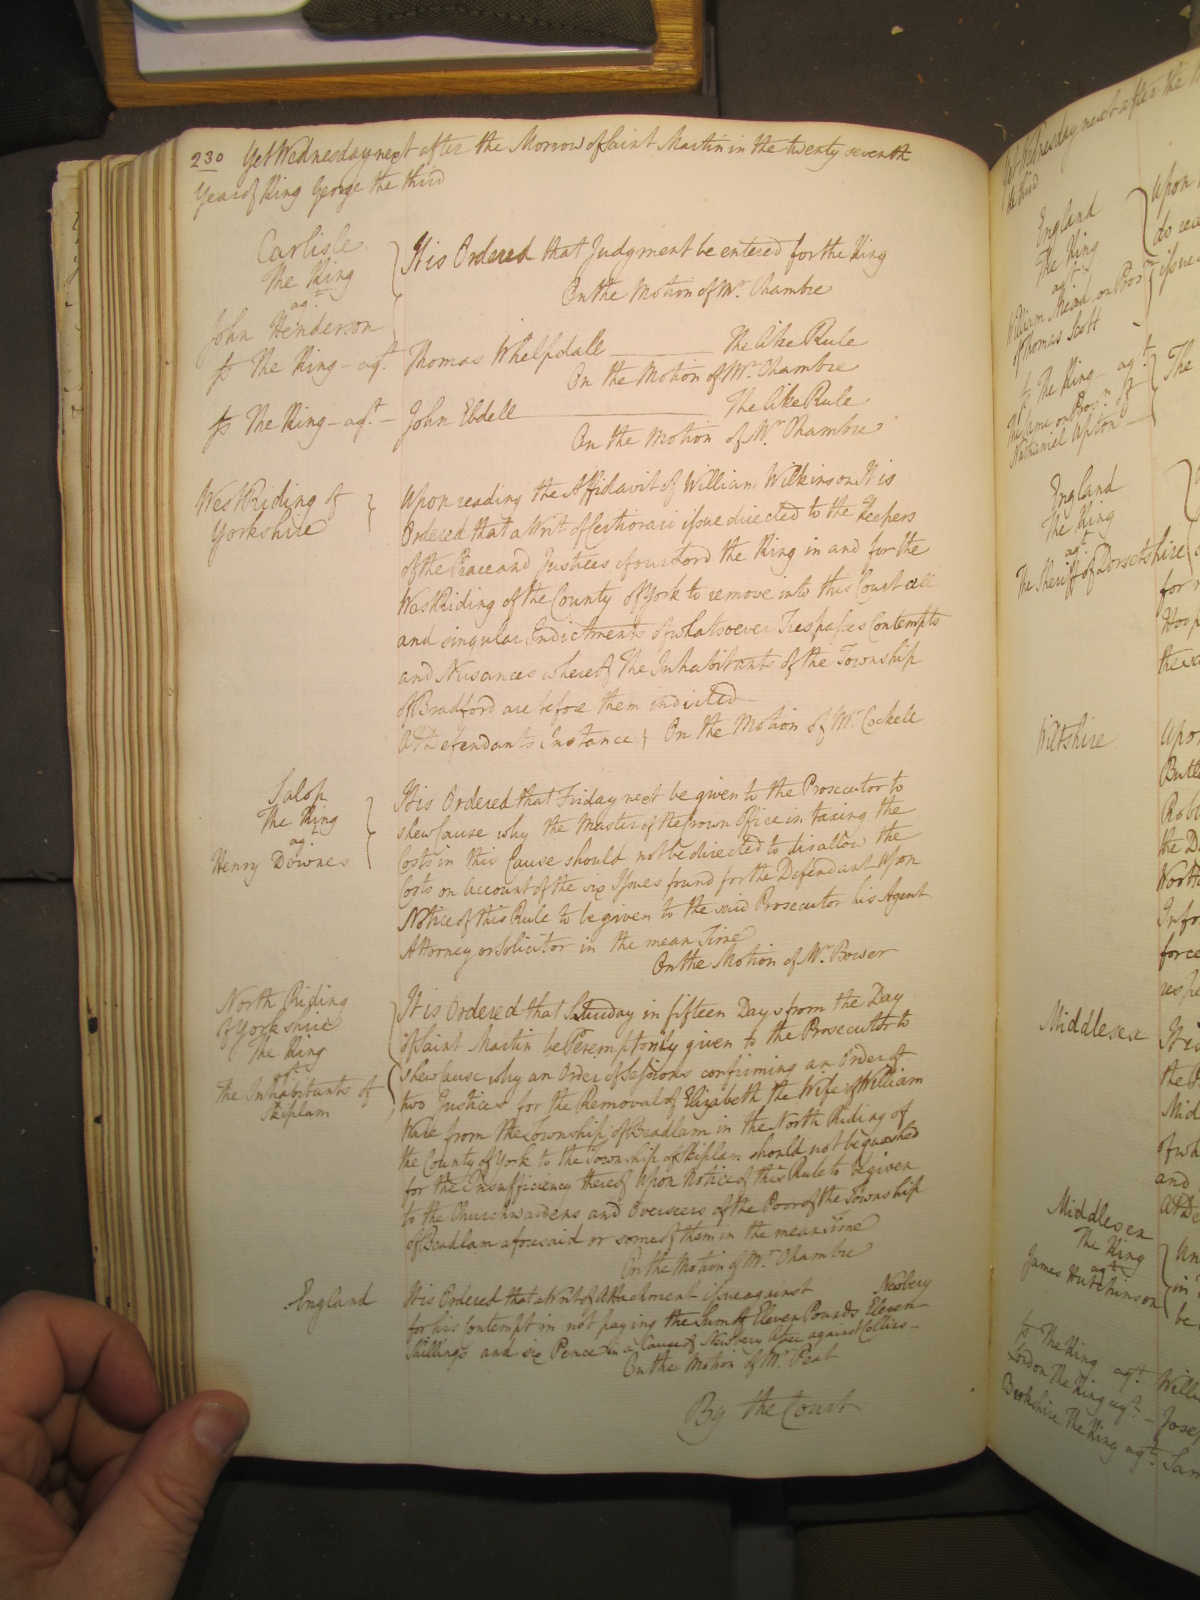 230 Yet Wednesday next after the Morrow of Saint Martin in the twenty seventh
Year of King George the third
Carlisle
The King
agt
John Henderson
It is Ordered that Judgment be entered for the King
On the Motion of Mr. Chambre
to The King – agt. Thomas Whelpdall — The like Rule
On the Motion of Mr. Chambre
to The King – agt – John Ebdell — The like Rule
On the Motion of Mr. Chambre
West Riding of
Yorkshire
Upon reading the Affidavit of William Wilkinson It is
Ordered that a Writ of Certiorari issue directed to the Keepers
of the Peace and Justices of our Lord the King in and for the
West Riding of the County of York to remove into this Court all
and singular Indictments of whatsoever Trespasses Contempts
and Nusances whereof The Inhabitants of the Township
of Bradford are before them indicted
At Defendants Instance } On the Motion of Mr. Cockell
Salop
The King
agt.
Henry Downes
It is Ordered that Friday next be given to the Prosecutor to
shew Cause why the Master of the Crown Office in taxing the
Costs in this Cause should not be directed to disallow the
Costs on Account of the six Issues found for the Defendant Upon
Notice of this Rule to be given to the said Prosecutor his Agent
Attorney or Solicitor in the mean Time
On the Motion of Mr. Bower
North Riding
of Yorkshire
The King
agt
The Inhabitants of
Skiplam
It is Ordered that Saturday in fifteen Days from the Day
of Saint Martin be Peremptorily given to the Prosecutor to
shew Cause why an Order of Sessions confirming an Order of
two Justices for the Removal of Elizabeth the Wife of William
Ware from the Township of Beadlam in the North Riding of
the County of York to the Township of Skiplam should not be quashed
for the Insufficiency thereof Upon Notice of this Rule to be given
to the Churchwardens and Overseers of the Poor of the Township
of Beadlam aforesaid or some of them in the mean Time
On the Motion of Mr. Chambre
England
It is Ordered that a Writ of Attachment issue against Newbery
for his Contempt in not paying the Sum of Eleven Pounds Eleven
Shillings and six Pence in a Cause of Newbery against Collins
On the Motion of Mr. Peat
By the Court
Yet Wednesday next after the
the third
England
The King
agt
William Mead on Prosn
of Thomas Scott
Upon
do
issue
to The King – agt
The same on Prosn of
Nathaniel Upton
The
England
The King
agt
The Sheriff of Dorsetshire
for
the
Wiltshire
Upon
the
North
force
Middlesex
It is
the
Mid
of
and
Middlesex
The King
agt
James Hutchinson
in
be
to The King agt. Willi
London The King agt – Jose
Berkshire The King agt. Sam